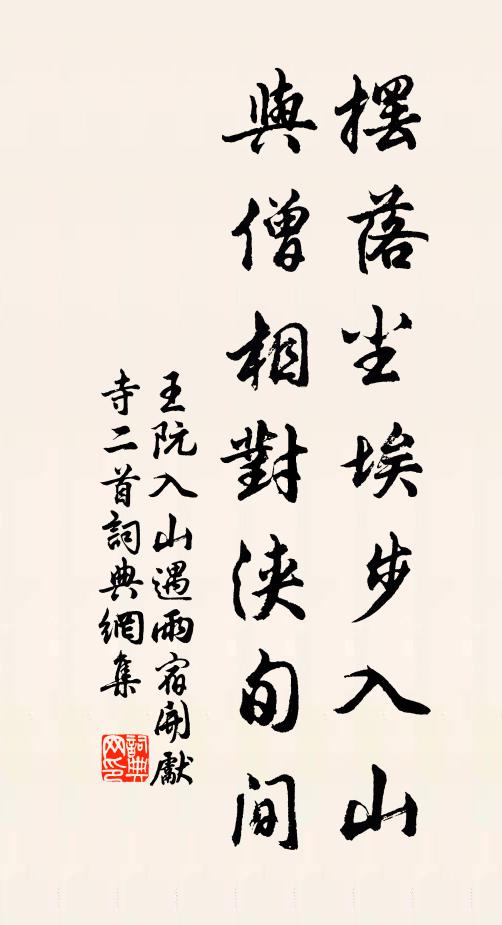 擺落尘埃步入山
與僧相對浹旬間
王阮入山遇雨宿開獻
寺二首詞典網集
詞典
网印